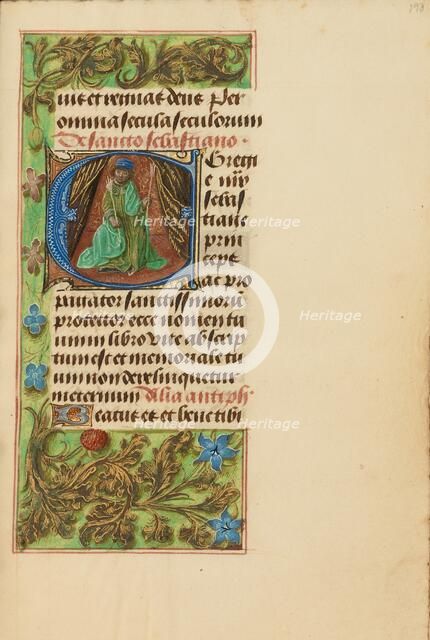 193
uit et regnat deus Per
omnia secula seculorum
De sancto sebastiano ·
E Gregi
e m̄r
sebas
tiane
prin
ceps
ac pro
pugnator sanctissimoru̅
protector ecce nomen tu
um in libro vite ab scrip
tum est et memoriale tu
um non derelinquetur
in eternum Alia antiph
Beatus es et bene tibi
Heritage
Heritage
Heritage
Heritage
Heritage
Heritage
Heritage